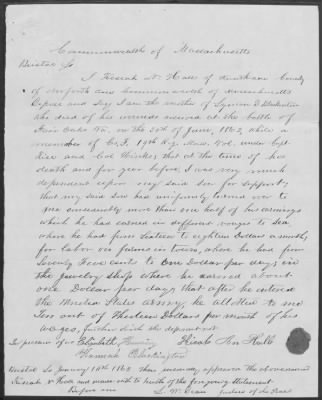 Commonwealth of Massachusetts
Bristol Ss
I Keziah N. Hall of County
of Norfolk and Commonwealth of Massachusetts
Depose and Say I am the mother of Lyman D.
who died of his wounds received at the battle of
Fair Oaks Va. on the of June, 1862, while a
member of Co. I. 19th Reg. Mass. Vol. under Capt
Rice and Col Hinks, that at the time of his
death and for year before, I was very much
dependent upon my said Son for support,
that my said Son had uniformly turned over to
me considerably more than one half of his earnings
which he had earned in different ways to
where he had from Sixteen to eighteen Dollars a month;
for labor on farms in town, where he had from
Seventy Five cents to one Dollar per day; in
the Jewelry Shops where he earned about
one Dollar per day; that after he entered
the United States Army, he allotted to me
Ten out of Thirteen Dollars per month of his
wages, further saith the deponent
In presence of us Elizabeth
Hannah
Bristol Ss January 1863 then personally appeared the above named
Keziah N Hall and made oath to truth of the foregoing Statement
Before me Justice of the Peace